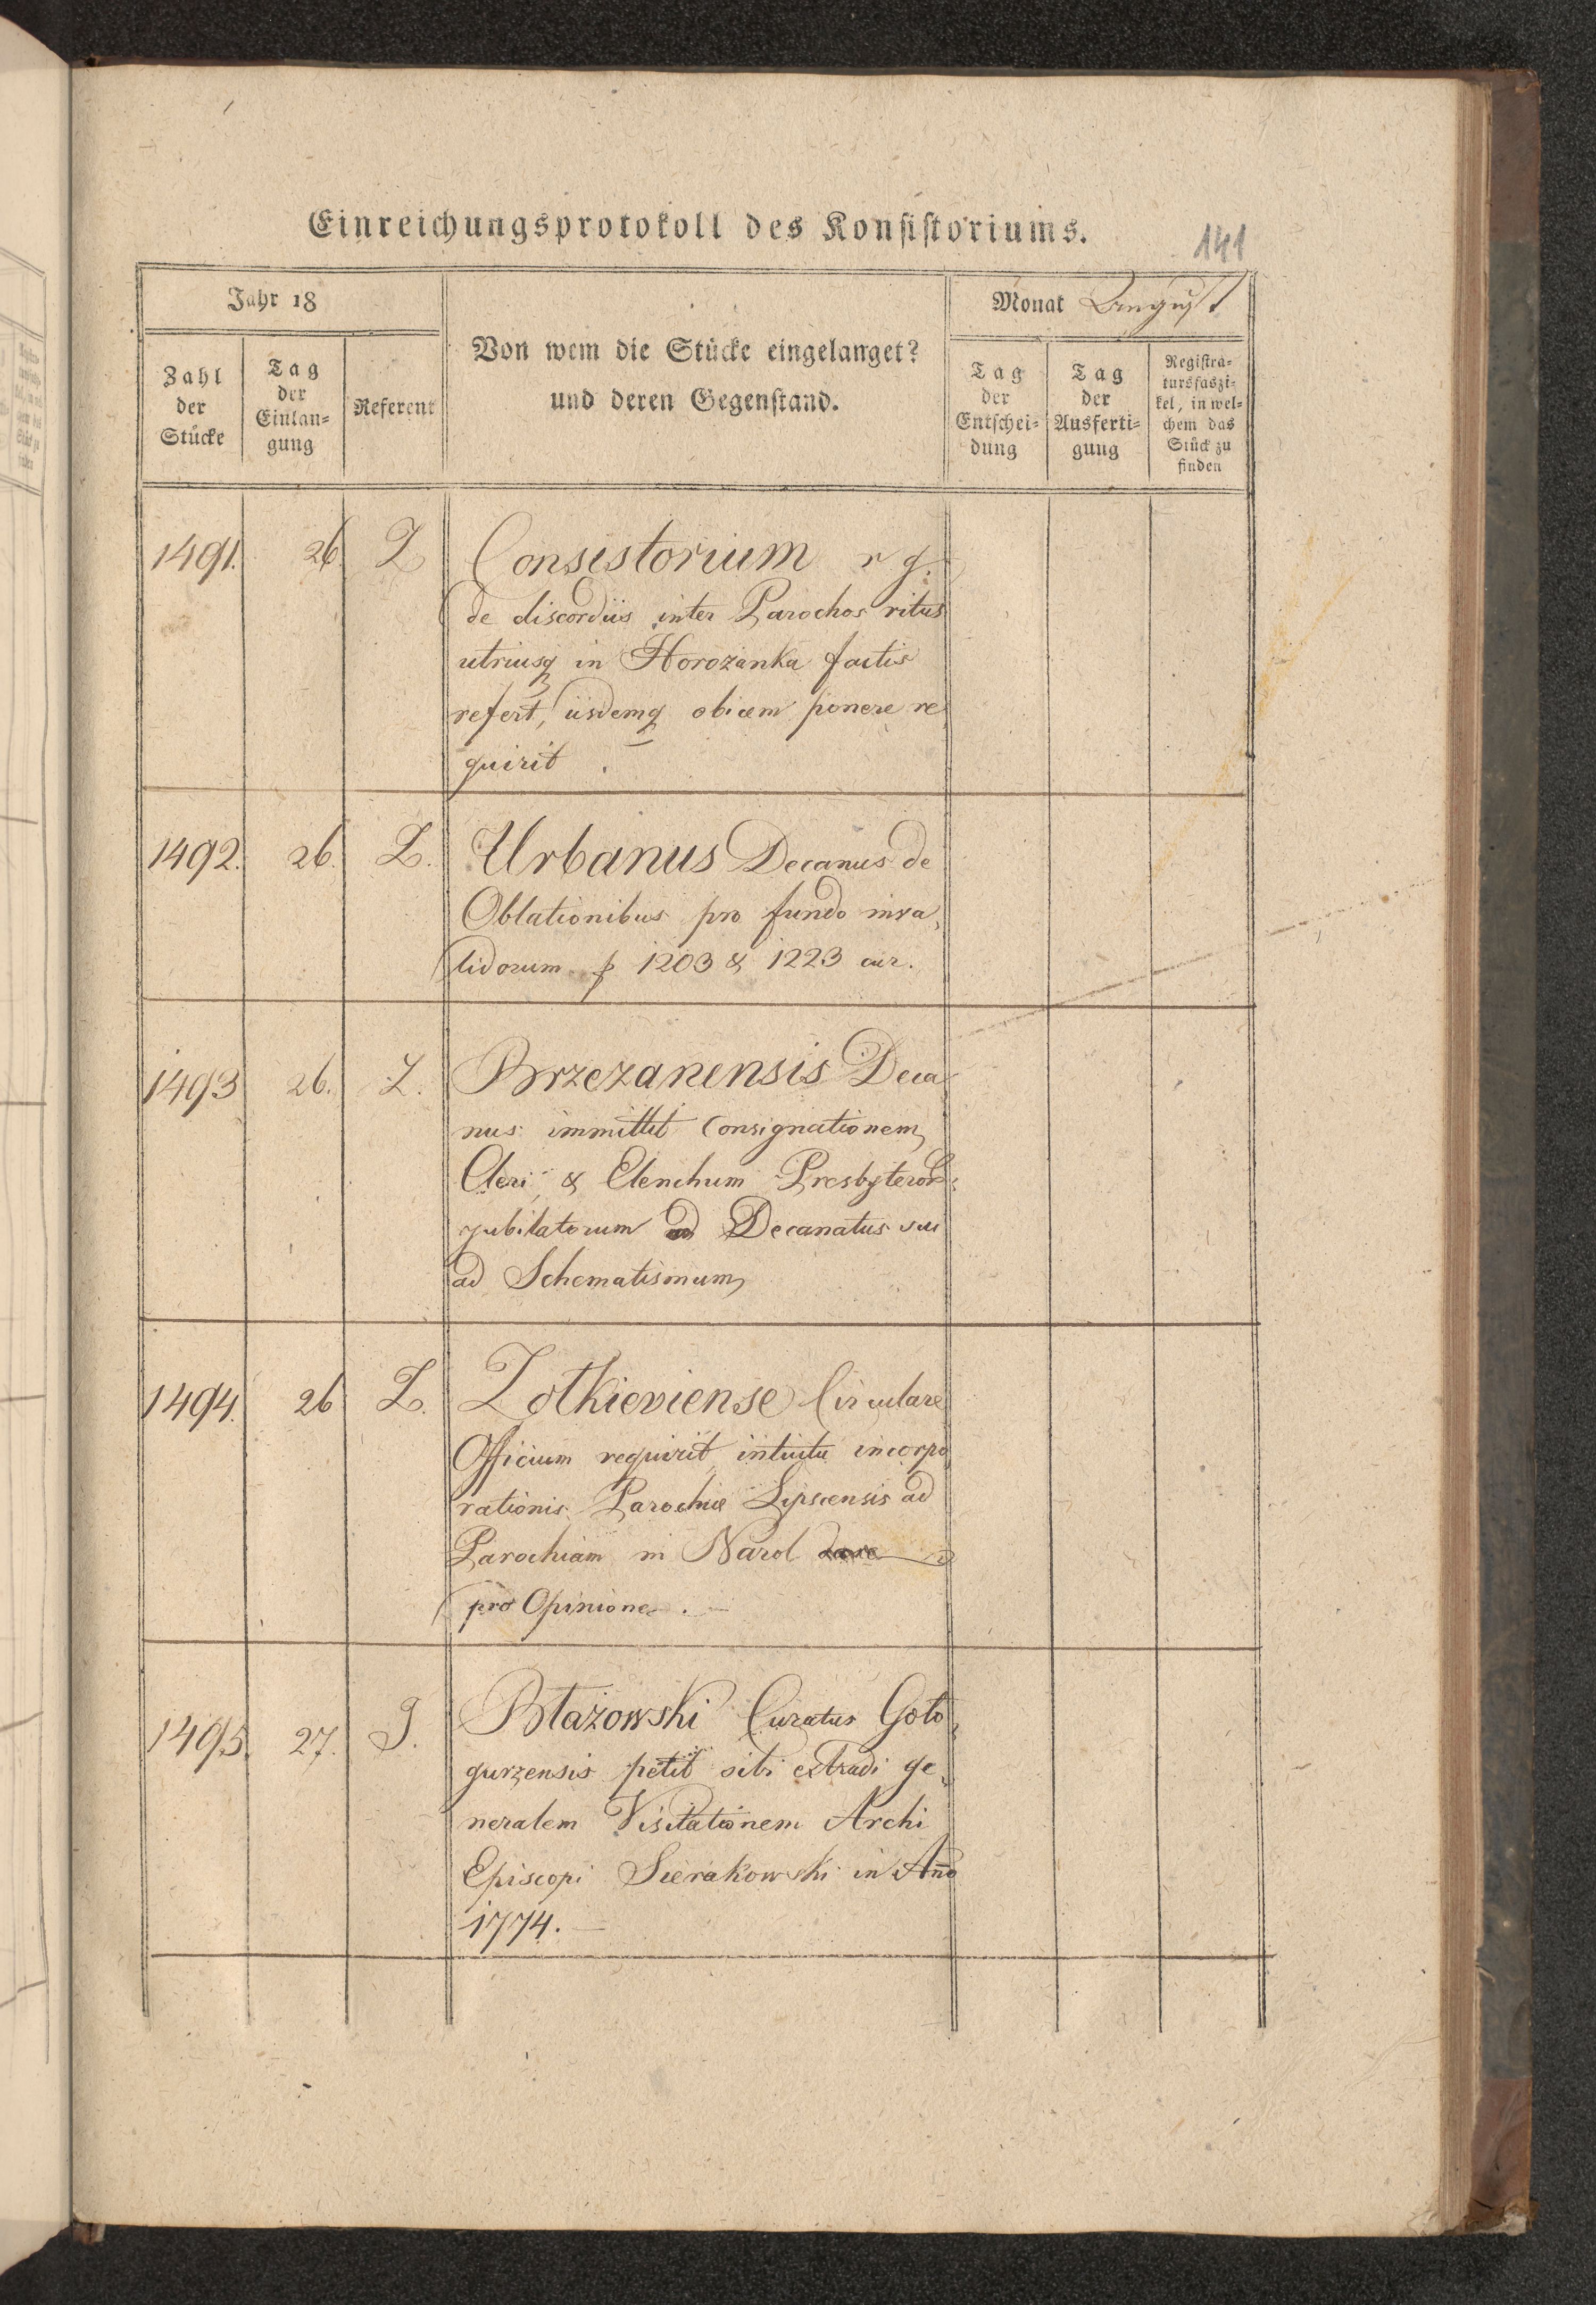 Einreichungsprotokoll des Konsistoriums.
141
Jahr 18
Monat August
Zahl der Stücke
Tag der Einlangung
Referent
Von wem die Stücke eingelanget?
und deren Gegenstand.
Tag der Entscheidung
Tag der Ausfertigung
Registratursfaszikel, in welchem das Stück zu finden
1491. 26. Z Consistorium r g.
de discordiis inter Parochos ritus
utriusq in Horozanka factis
refert, iisdemq obicem ponere re
quirit.
1492. 26. Z. Urbanus Decanus de
Oblationibus pro fundo inva,
lidorum p 1203 & 1223 cir.
1493 26. Z. Brzezanensis Deca
nus immittit Consignationem
Cleri & Elenchum Presbyteror:
jubilatorum Decanatus sui
ad Schematismum
1494. 26 Z. Zołkieviense Circulare
Officium requirit intuitu incorpo
rationis Parochiæ Lipscensis ad
Parochiam in Narol
pro Opinione. —
1495. 27. J. Błażowski Curatus Goło,
gurzensis petit sibi extradi ge,
neralem Visitationem Archi
Episcopi Sierakowski in Ano
1774. —